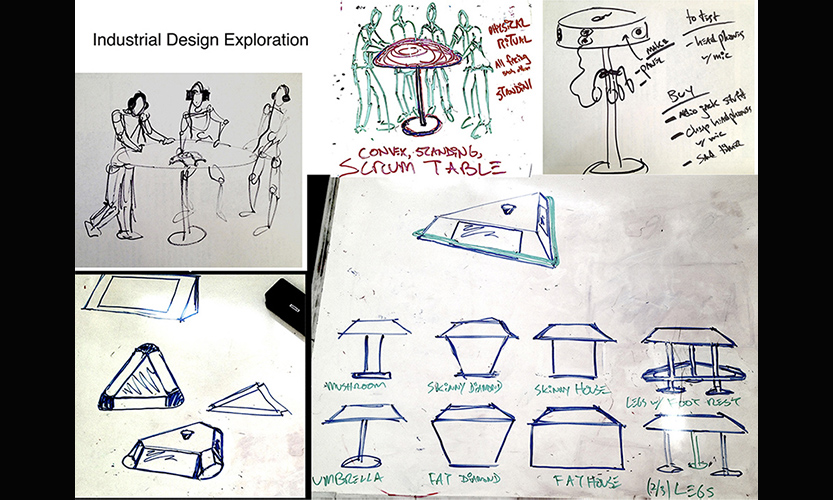 Industrial Design Exploration
PHYSICAL
RITUAL
All facing
each other
STANDING
CONVEX, STANDING,
SCRUM TABLE
to test
- headphones
w/ mic
make
- pause
BUY
- audio jack
- cheap headphones
w/ mic
MUSHROOM
SKINNY DIAMOND
SKINNY HOUSE
LEGS w/ FOOT REST
UMBRELLA
FAT DIAMOND
FAT HOUSE
(2/3) LEGS